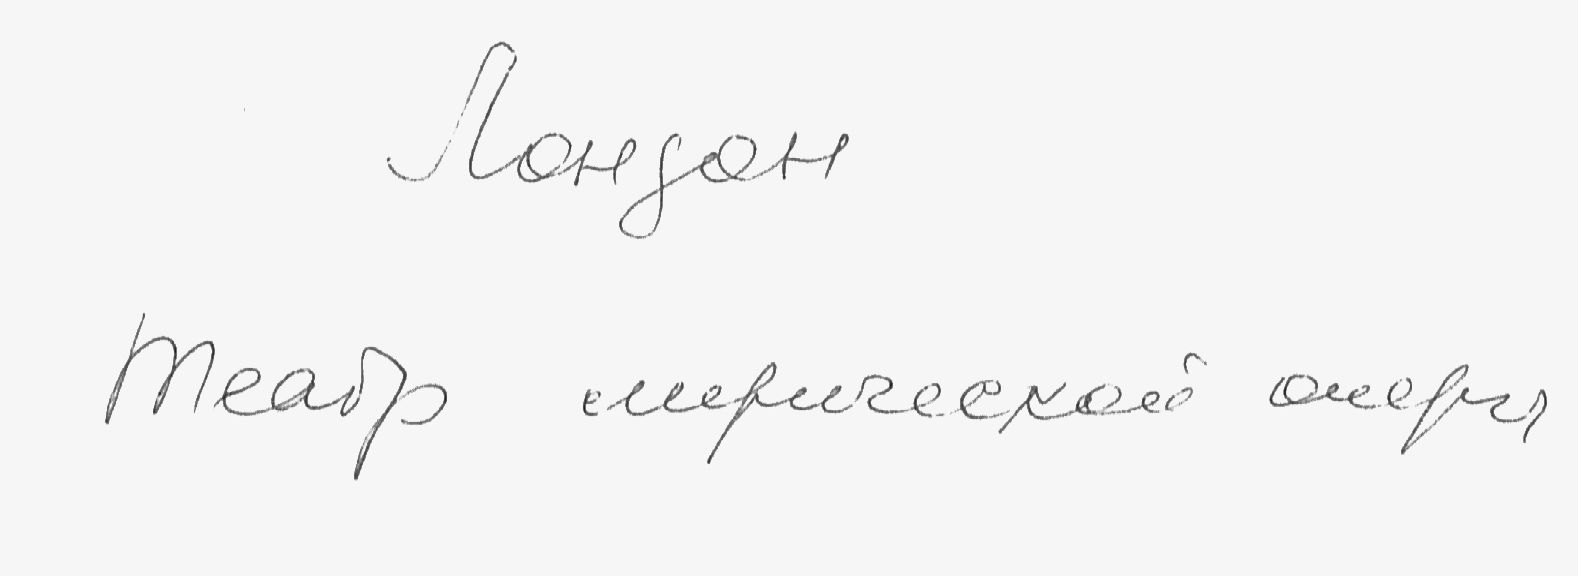 Лондон
Театр лирической оперы